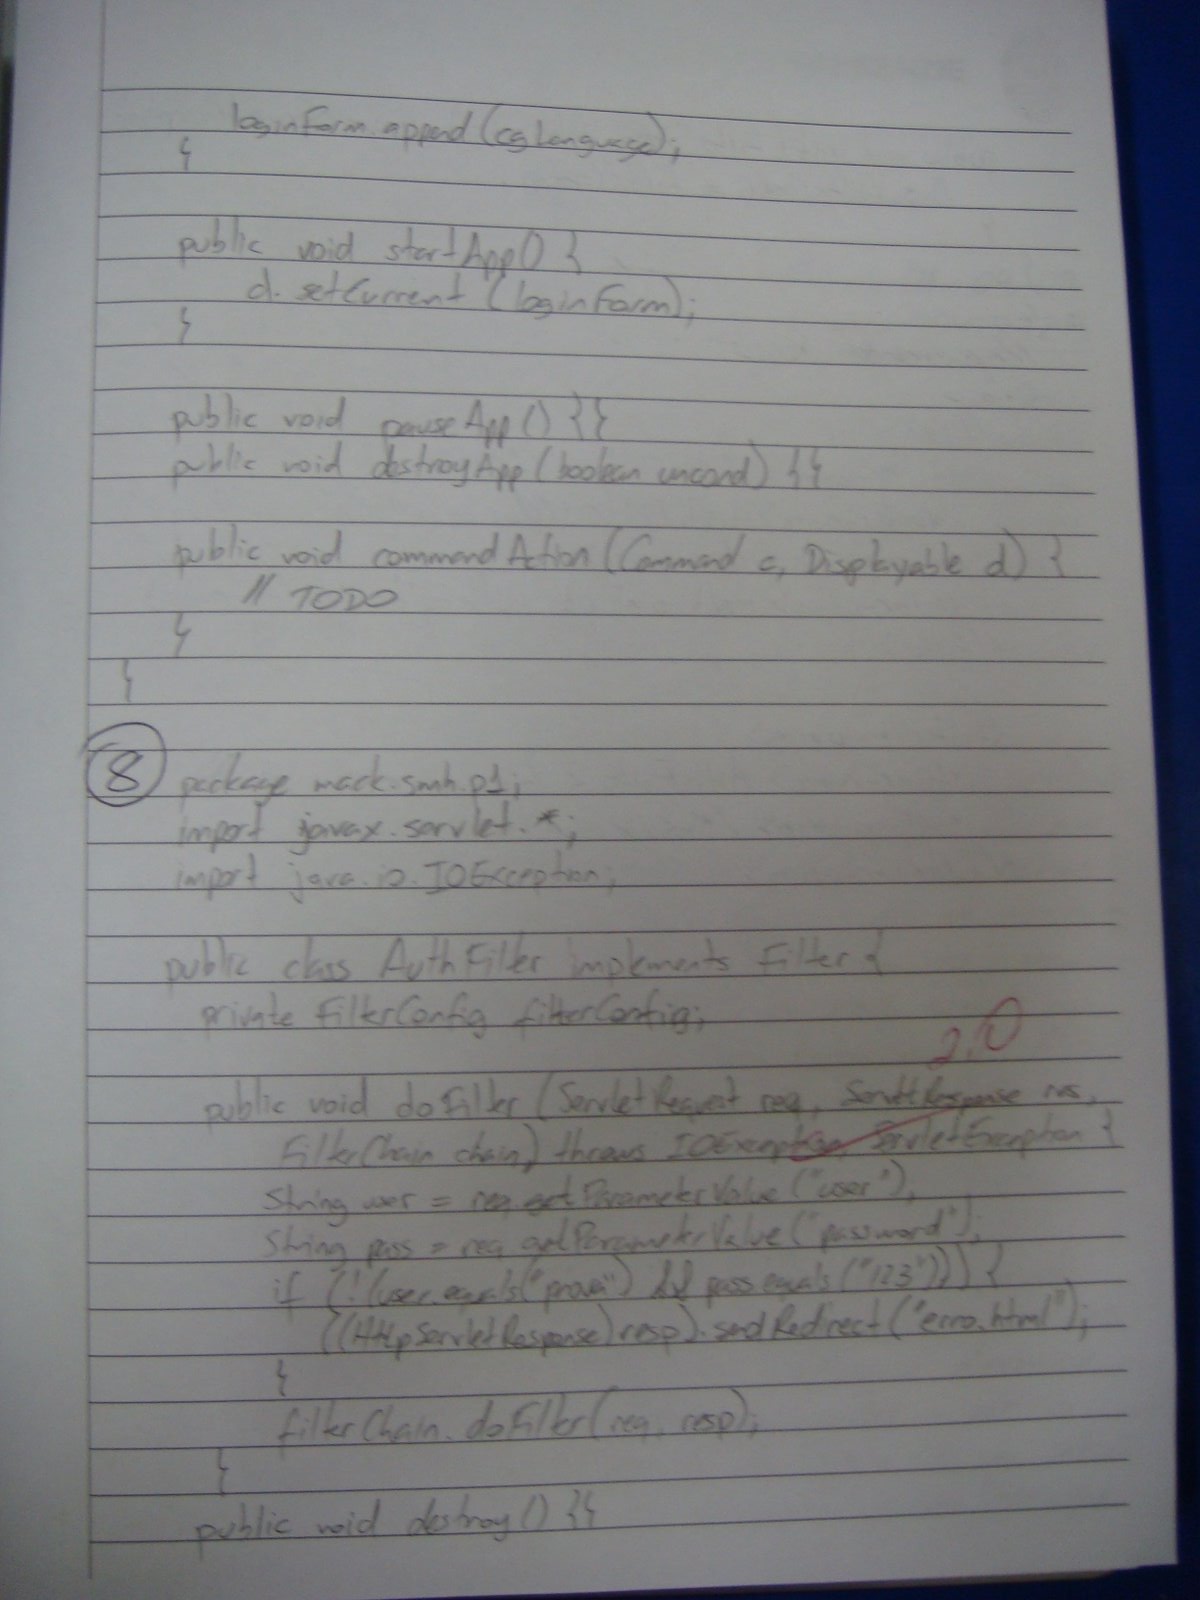 loginForm.append(cgLanguage);
}
public void startApp() {
d.setCurrent(loginForm);
}
public void pauseApp() {}
public void destroyApp(boolean uncond) {}
public void commandAction(Command c, Displayable d) {
// TODO
}
}
8 package mack.smh.p1;
import javax.servlet.*;
import java.io.IOException;
public class AuthFilter implements Filter {
private FilterConfig filterConfig;
2,0
public void doFilter(ServletRequest req, ServletResponse res,
FilterChain chain) throws IOException, ServletException {
String user = req.getParameterValue("user");
String pass = req.getParameterValue("password");
if (!(user.equals("prova") && pass.equals("123"))) {
((HttpServletResponse) resp).sendRedirect("erro.html");
}
filterChain.doFilter(req, resp);
}
public void destroy() {}